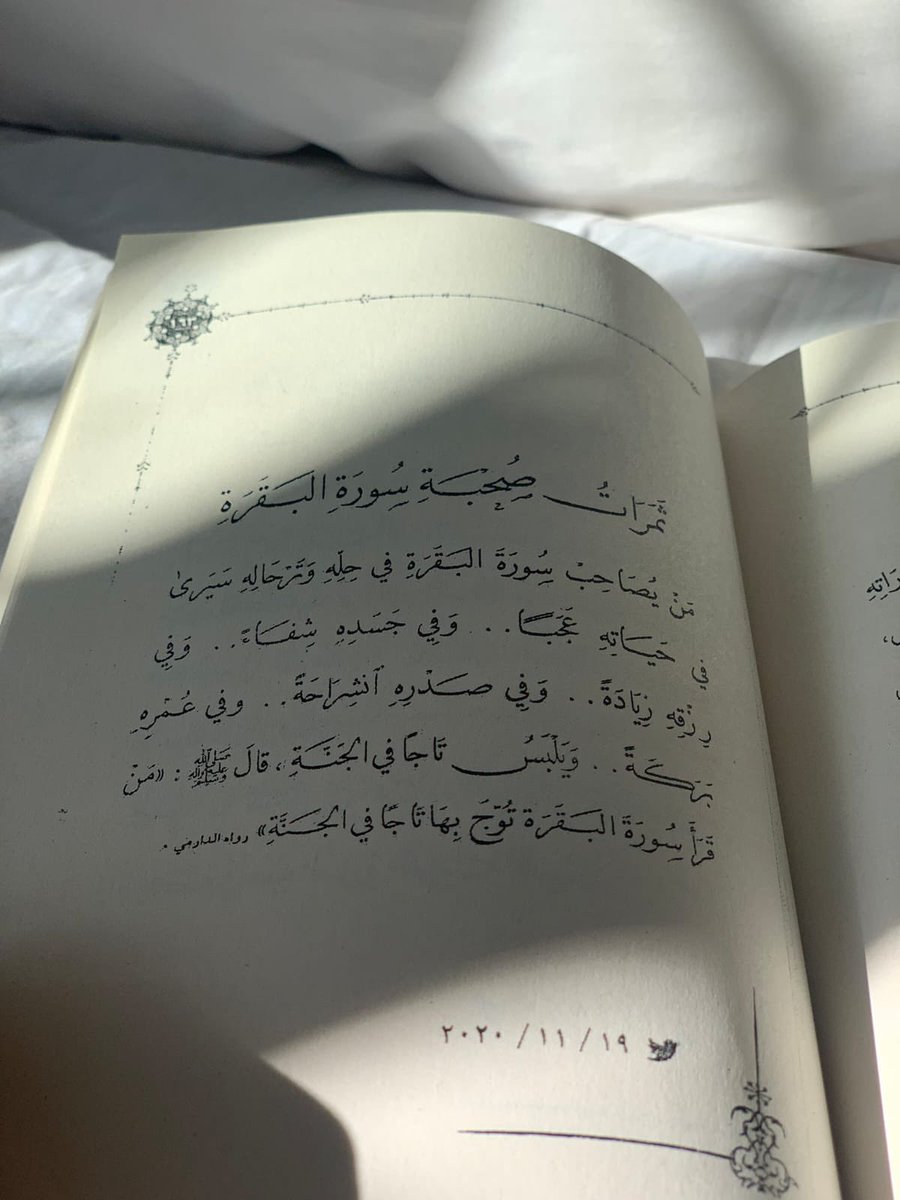 ثَمَرَاتُ صُحْبَةِ سُورَةِ البَقَرَةِ
مَنْ يُصَاحِبْ سُورَةَ البَقَرَةِ في حِلِّهِ وَتَرْحَالِهِ سَيَرىٰ
في حَيَاتِهِ عَجَبًا.. وَفي جَسَدِهِ شِفَاءً.. وَفي
رِزْقِهِ زِيَادَةً.. وَفي صَدْرِهِ ٱنْشِرَاحَةً.. وفي عُمْرِهِ
بَرَكَةً.. وَيَلْبَسُ تَاجًا في الجَنَّةِ، قالَ ﷺ: «مَنْ
قَرَأَ سُورَةَ البَقَرَة تُوِّجَ بِهَا تَاجًا في الجَنَّةِ» رواه الدارمي.
١٩ / ١١ / ٢٠٢٠